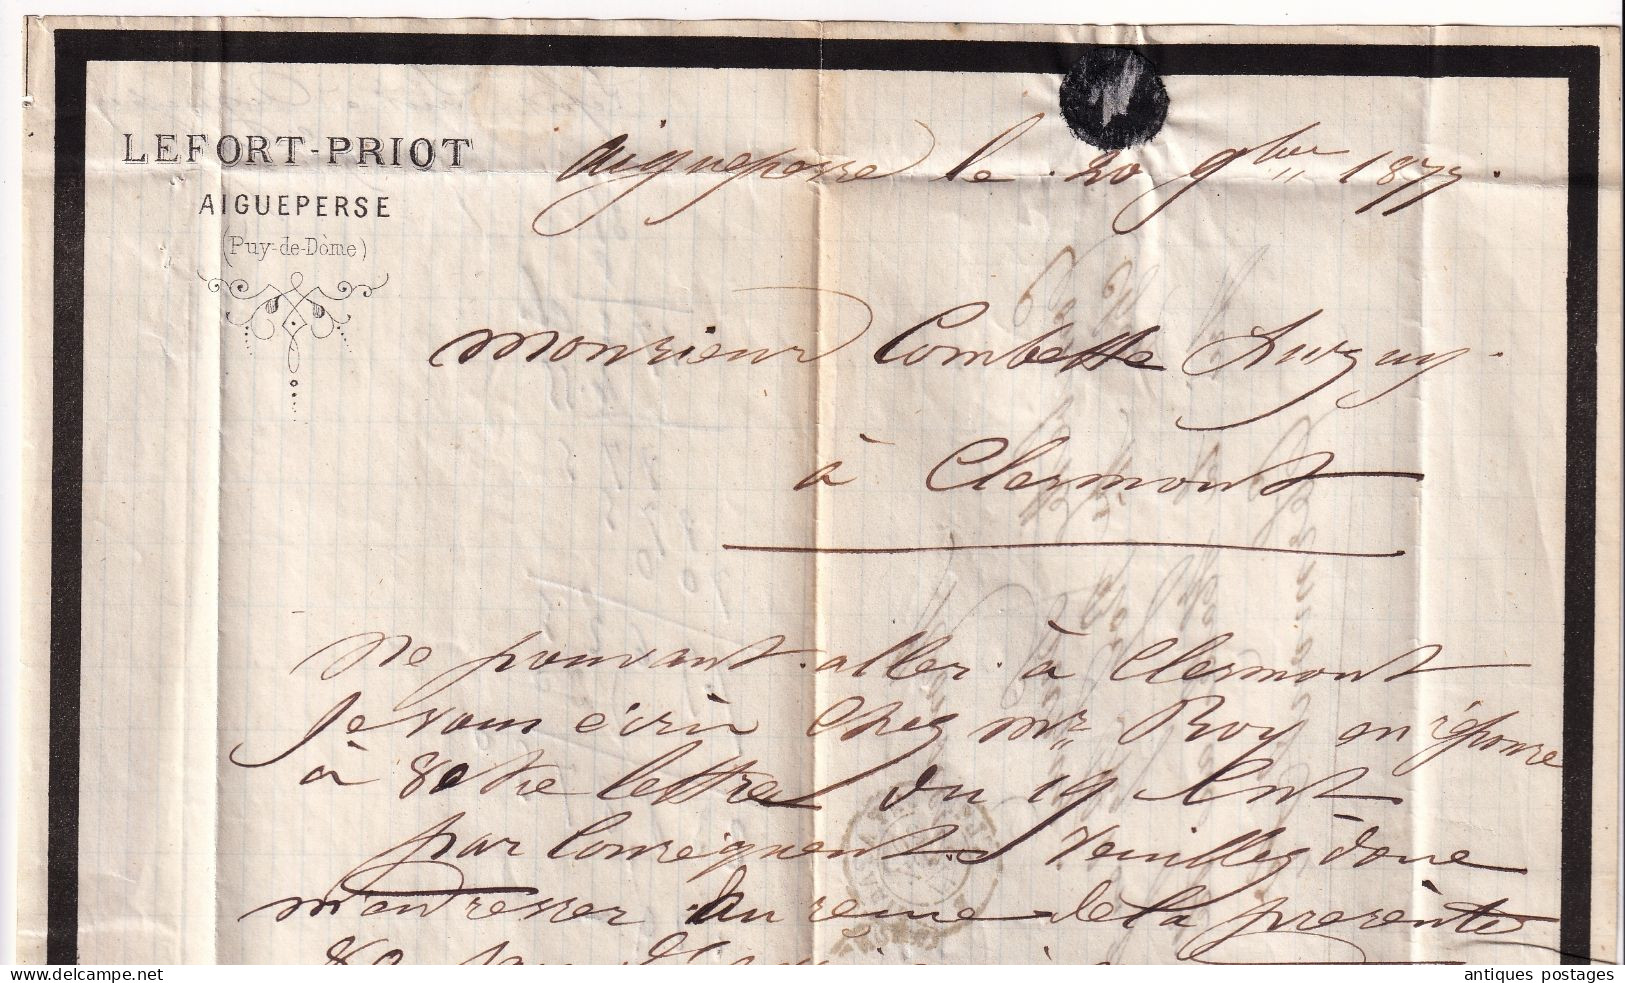 LEFORT-PRIOT
AIGUEPERSE
(Puy-de-Dôme)
Aigueperse le 20 9bre 1877.
Monsieur Combette
à Clermont
Ne pouvant aller à Clermont
Je vous écris chez Mr Roy en réponse
à votre lettre du 19 Cnt
par Conséquent Veuillez donc
m'adresser Au reçue de la présente
antiques postages